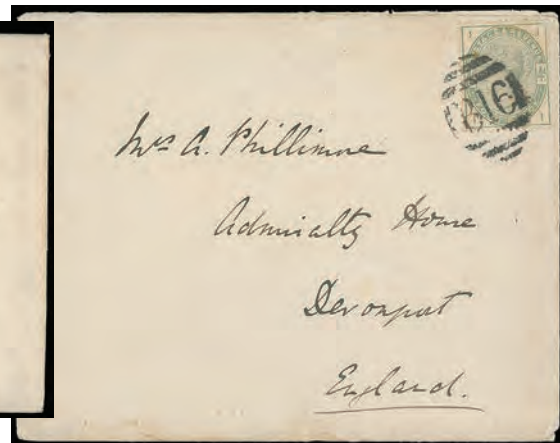 Mrs A. Phillimore
Admiralty House
Devonport
England.